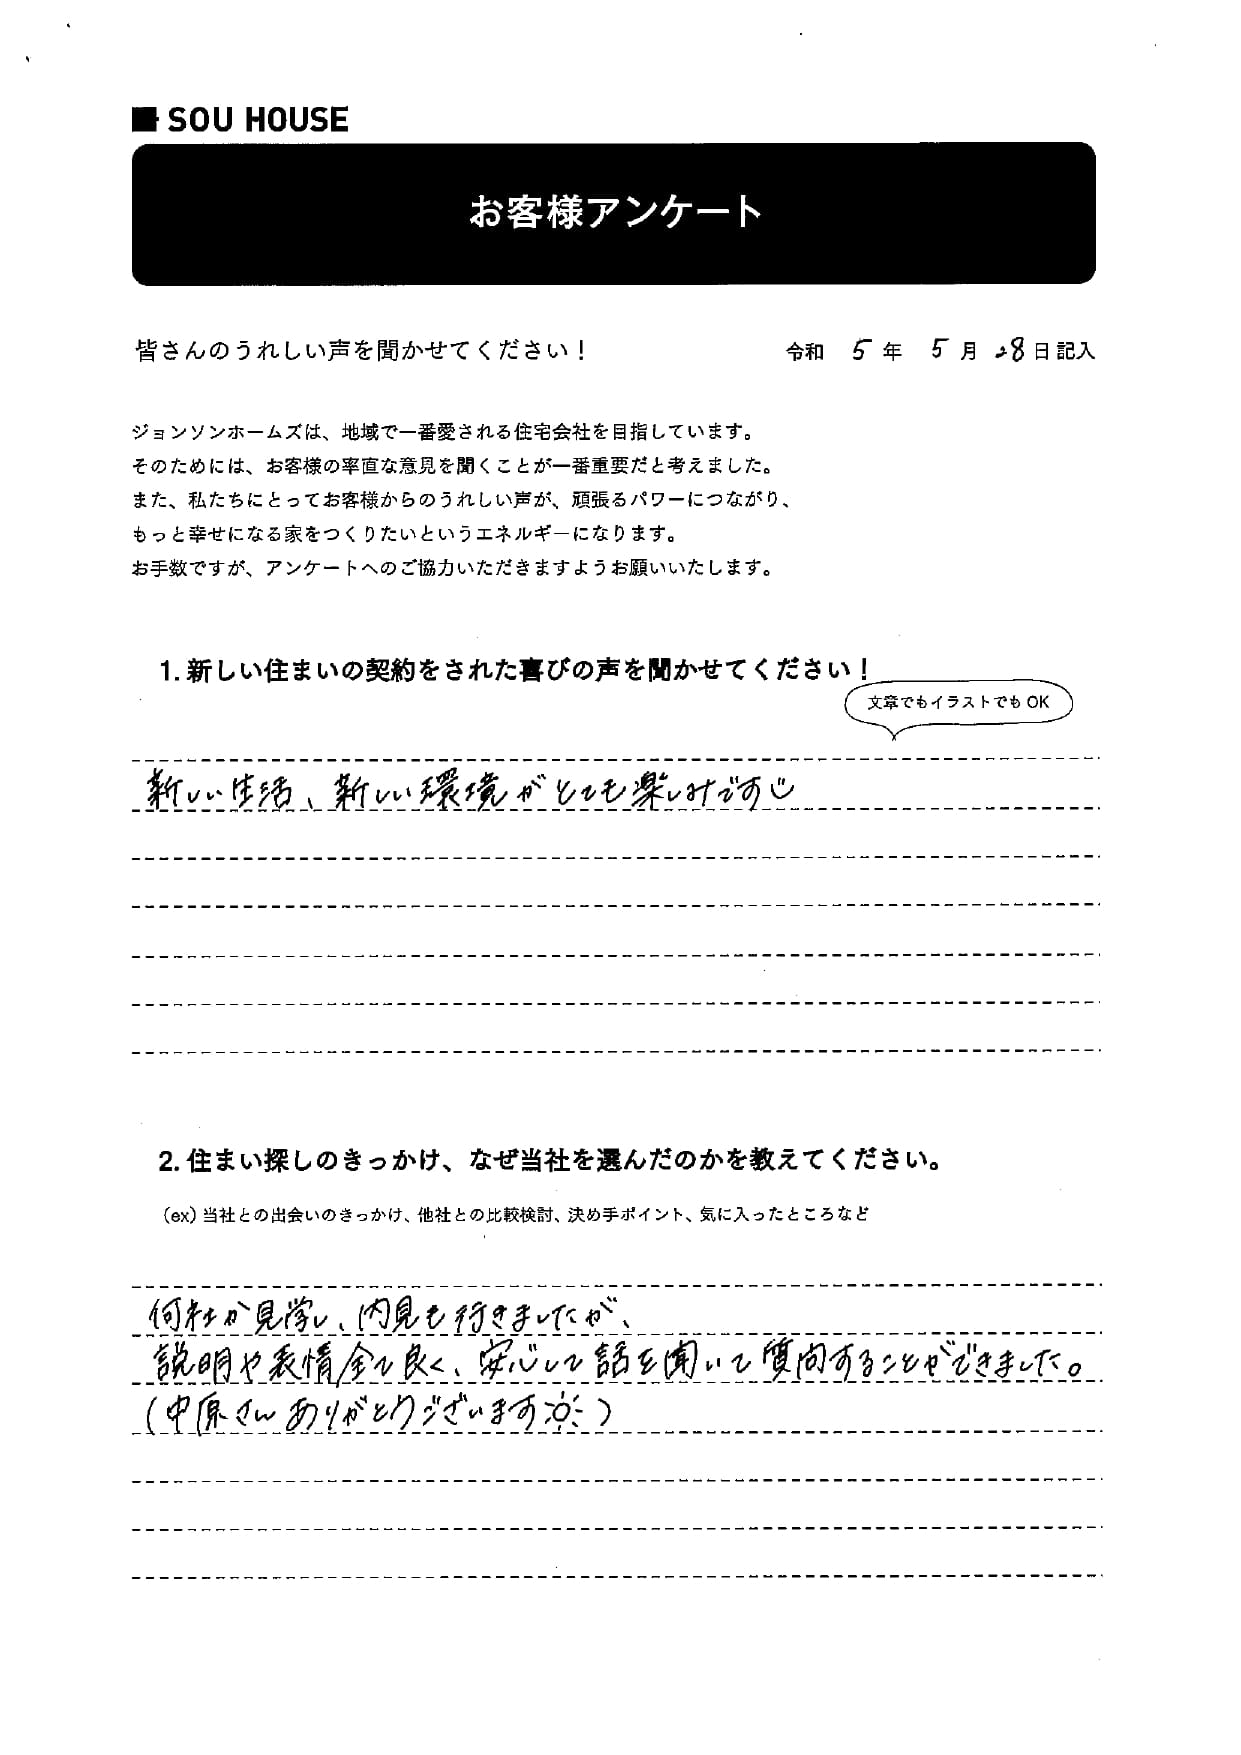 SOU HOUSE
お客様アンケート
皆さんのうれしい声を聞かせてください！
令和 5 年 5 月 28 日 記入
ジョンソンホームズは、地域で一番愛される住宅会社を目指しています。
そのためには、お客様の率直な意見を聞くことが一番重要だと考えました。
また、私たちにとってお客様からのうれしい声が、頑張るパワーにつながり、
もっと幸せになる家をつくりたいというエネルギーになります。
お手数ですが、アンケートへのご協力いただきますようお願いいたします。
1. 新しい住まいの契約をされた喜びの声を聞かせてください！
文章でもイラストでも OK
新しい生活、新しい環境がとても楽しみです
2. 住まい探しのきっかけ、なぜ当社を選んだのかを教えてください。
（ex）当社との出会いのきっかけ、他社との比較検討、決め手ポイント、気に入ったところなど
何社か見学し、内見も行きましたが、
説明や表情全て良く、安心して話を聞いて質問することができました。
（中原さんありがとうございます）